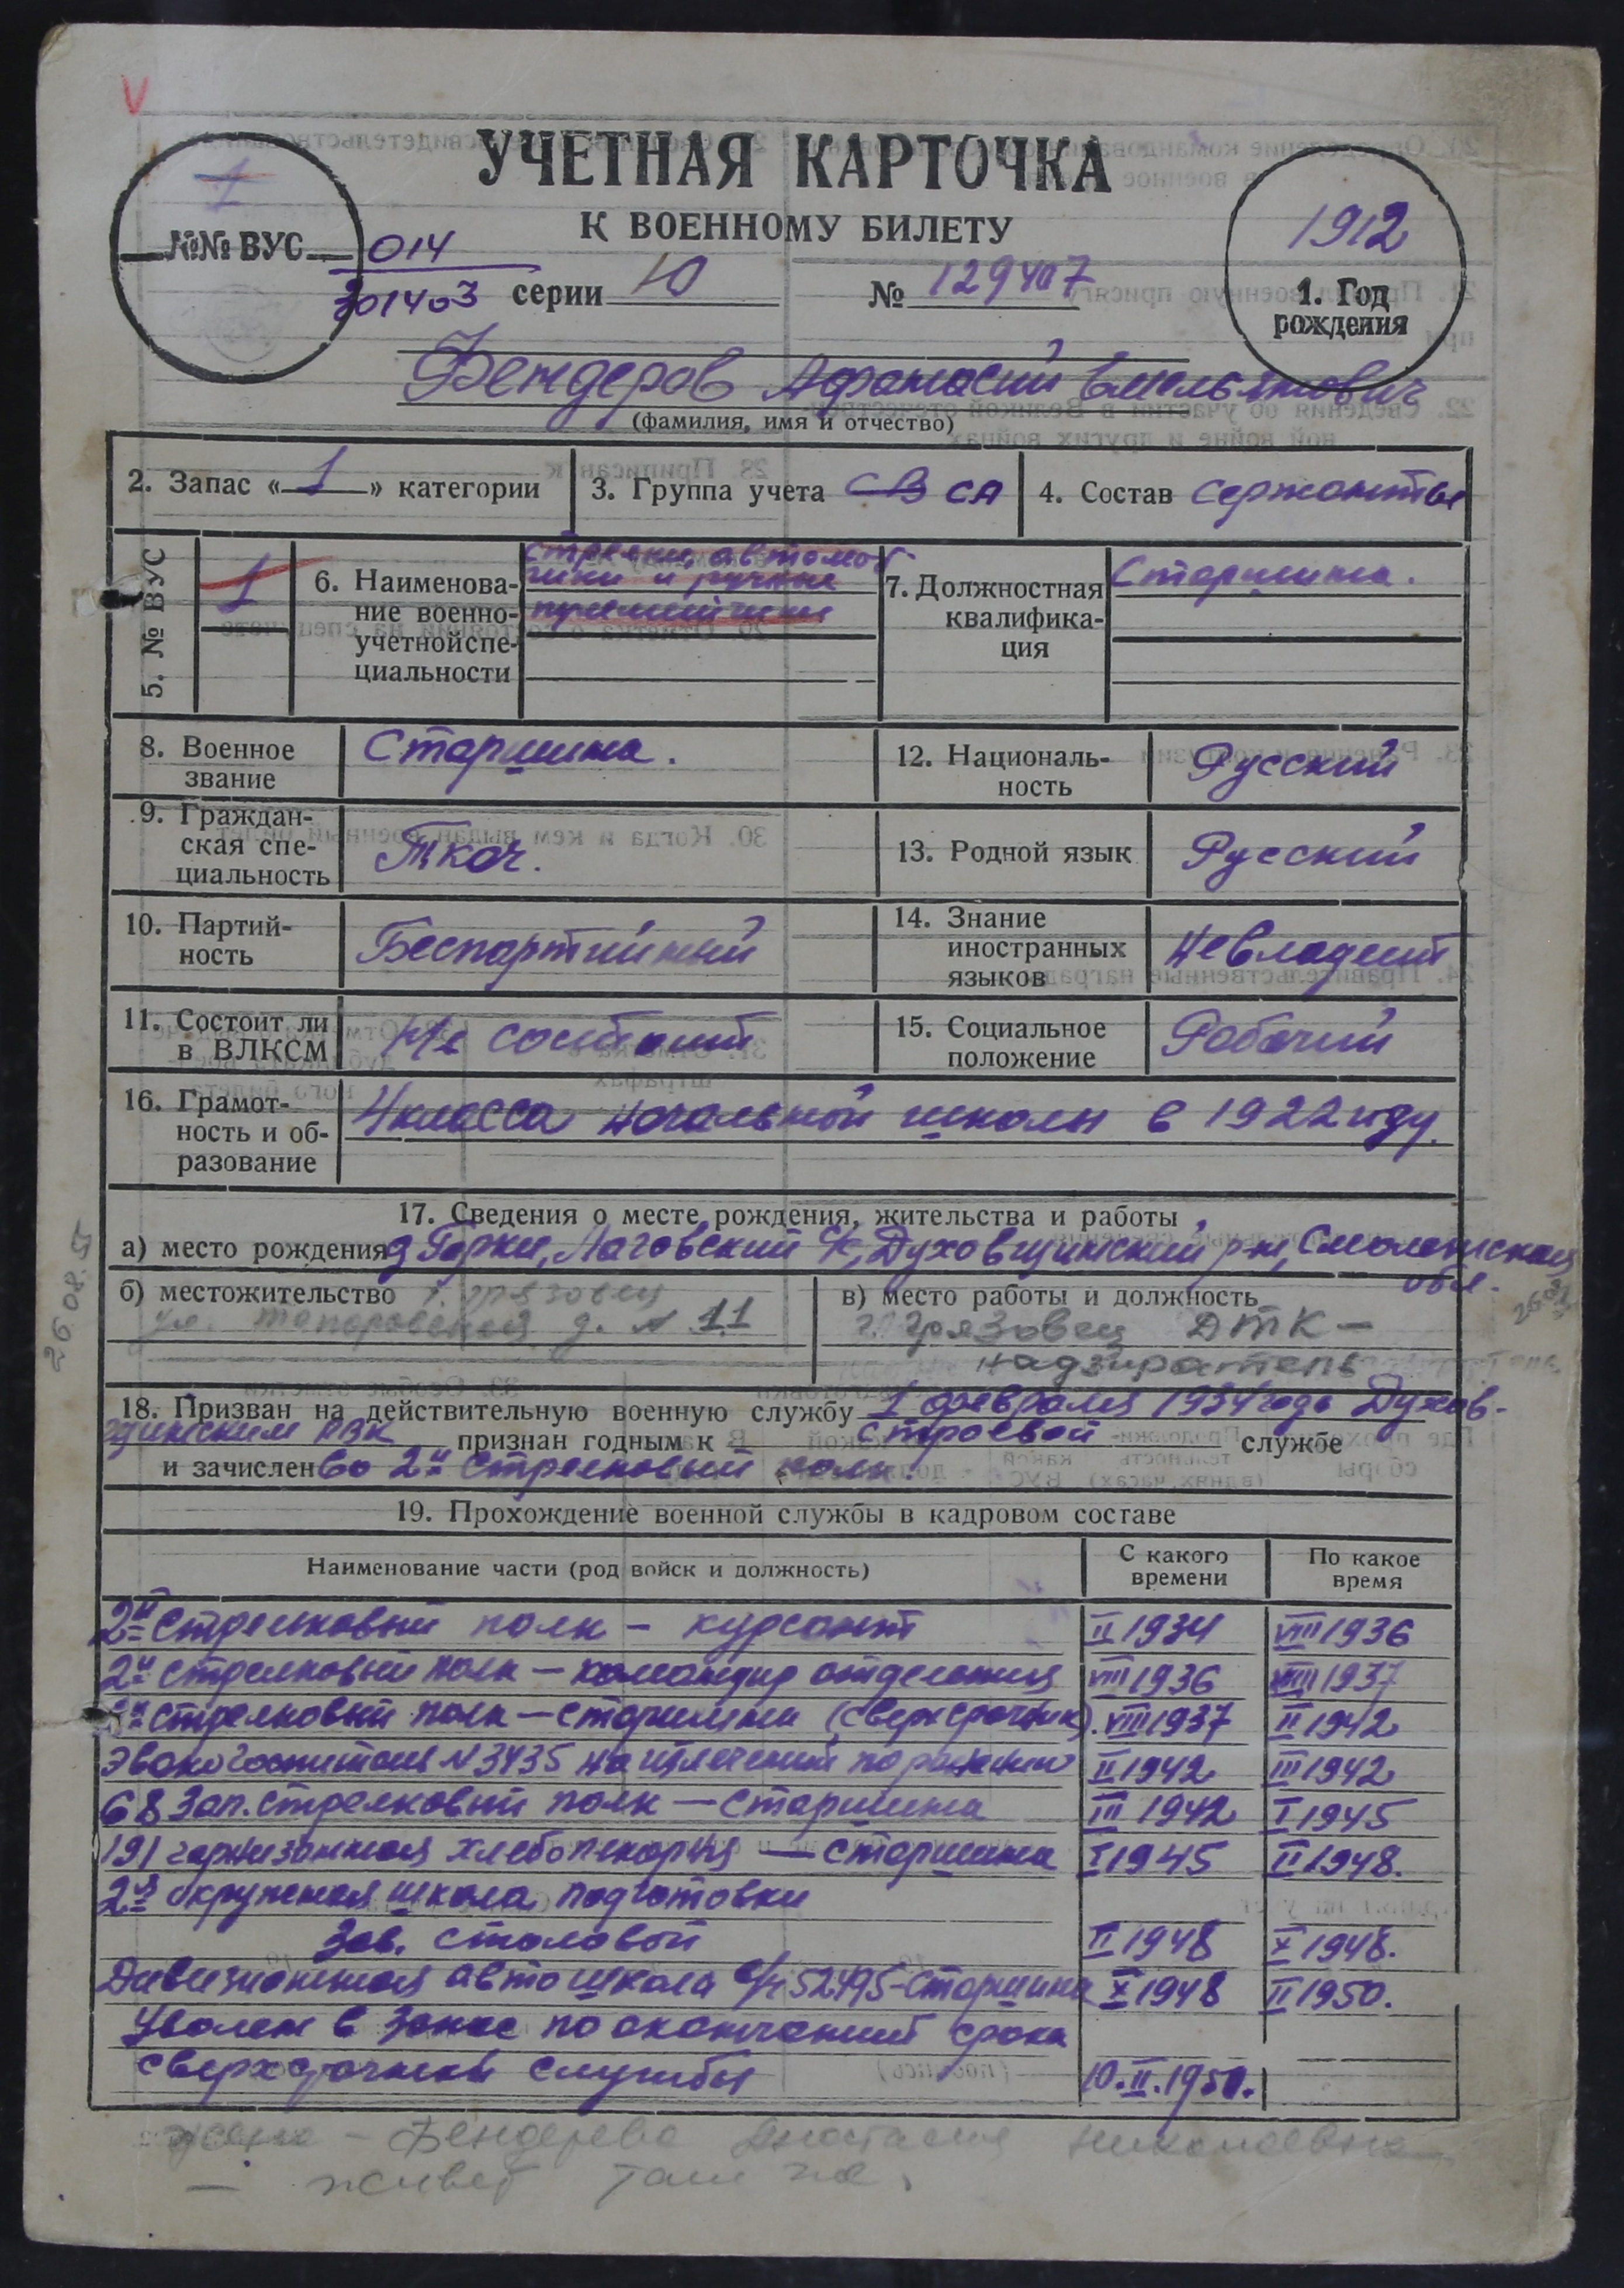 V
УЧЕТНАЯ КАРТОЧКА
К ВОЕННОМУ БИЛЕТУ
1
№№ ВУС 014
301403 серии Ю № 129407
1912
1. Год
рождения
Бендеров Афанасий Емельянович
(фамилия, имя и отчество)
2. Запас «1» категории
3. Группа учета СВ СА
4. Состав сержанты
5. № ВУС
1
6. Наименова-
ние военно-
учетной спе-
циальности
стрелки, автомат
чики и ручные
пулеметчики
7. Должностная
квалифика-
ция
Старшина.
8. Военное
звание
Старшина.
12. Националь-
ность
Русский
9. Граждан-
ская спе-
циальность
Ткач.
13. Родной язык
Русский
10. Партий-
ность
Беспартийный
14. Знание
иностранных
языков
Не владеет
11. Состоит ли
в ВЛКСМ
Не состоит
15. Социальное
положение
Рабочий
16. Грамот-
ность и об-
разование
4 класса начальной школы в 1922 году.
17. Сведения о месте рождения, жительства и работы
а) место рождения д Горки, Логовский с/с, Духовщинский р-н, Смоленская
обл.
б) местожительство г. Грязовец
ул. д. № 11
в) место работы и должность
г. Грязовец ДТК –
надзиратель
26.08.
18. Призван на действительную военную службу 1 февраля 1934 года Духов-
щинским РВК признан годным к строевой службе
и зачислен во 2й стрелковый полк.
19. Прохождение военной службы в кадровом составе
Наименование части (род войск и должность)
С какого
времени
По какое
время
2й стрелковый полк – курсант II 1934 VIII 1936
2й стрелковый полк – командир отделения VIII 1936 VIII 1937
2й стрелковый полк – старшина (сверхсрочник). VIII 1937 II 1942
Эвакогоспиталь N 3435 на излечении по ранению II 1942 III 1942
68 Зап. стрелковый полк – старшина III 1942 I 1945
191 гарнизонная хлебопекарня – старшина I 1945 II 1948.
2я окружная школа подготовки
Зав. столовой II 1948 X 1948.
Дивизионная автошкола в/ч 52495 - старшина X 1948 II 1950.
Уволен в запас по окончаний срока
сверхсрочной службы 10.II.1950.
жена – Бендерова Анастасия Николаевна
– живет там же.